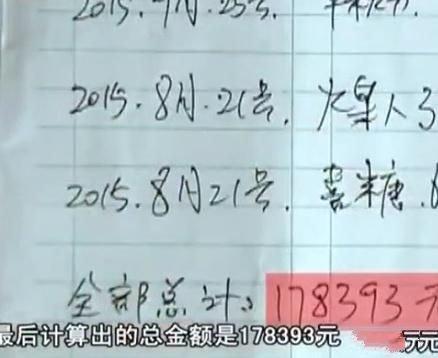 2015.7月.25号.
2015.8月.21号.
2015.8月21号.喜糖.
全部总计:178393元
最后计算出的总金额是178393元
元元